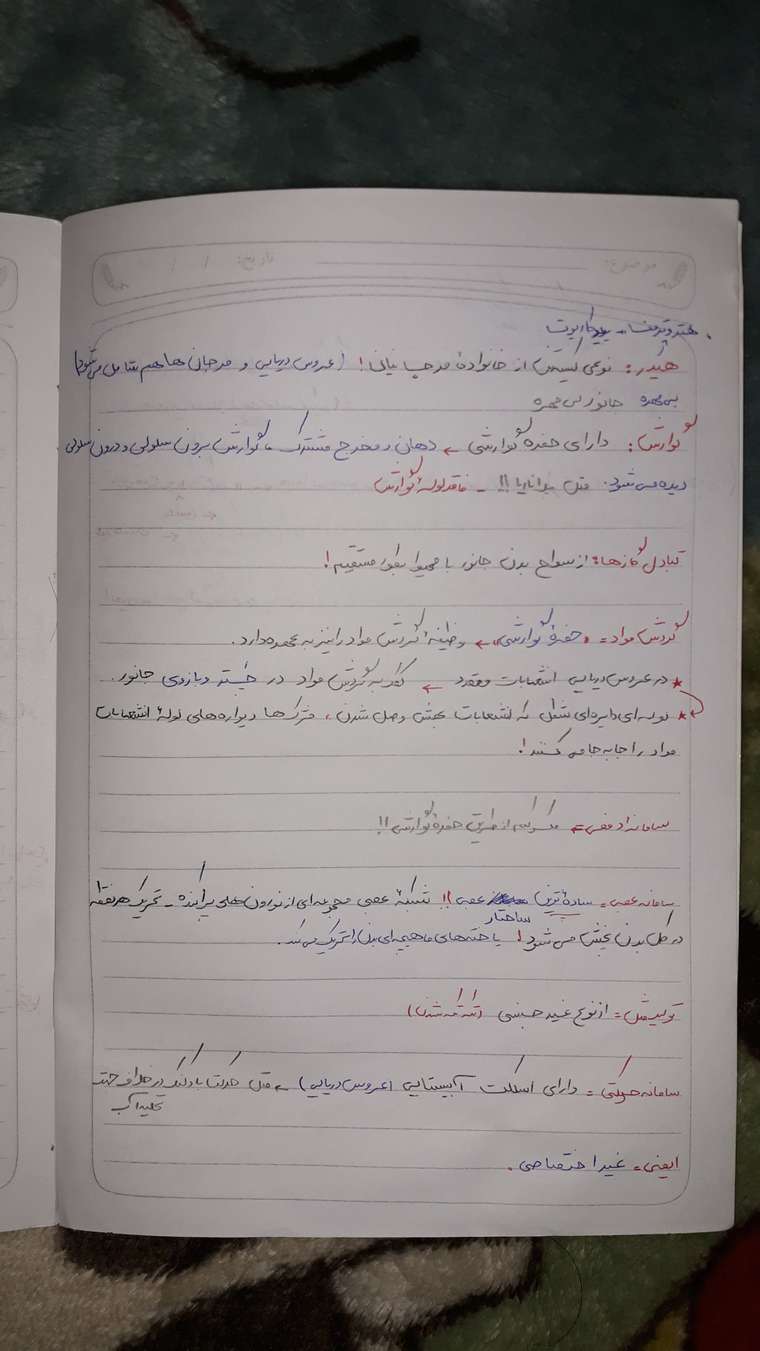 موضوع: تاریخ: / /
هتروتروف - یوکاریوت
هیدر: نوعی کیسه‌تن از خانوادهٔ مرجانیان! (عروس دریایی و مرجان‌ها هم شامل می‌شود)
بی‌مهره جانور بی‌مهره
گوارش: دارای حفرهٔ گوارشی ← دهان و مخرج مشترک، گوارش برون سلولی و درون سلولی
دیده می‌شود. مثل پلاناریا!! - فاقد لولهٔ گوارش
تبادل گازها: از سطح بدن جانور با محیط بطور مستقیم!
گردش مواد = «حفرهٔ گوارشی» ← وظیفهٔ گردش مواد را نیز به عهده دارد.
* در عروس دریایی انشعابات متعدد ← کمک به گردش مواد در چتر و بازوی جانور.
* لوله‌ای دایره‌ای شکل که انشعابات بهش وصل شدن، مژک‌ها دیواره‌های لولهٔ انشعابات
مواد را جابه‌جا می‌کنند!
سامانه دفعی = از طریق حفرهٔ گوارشی!!
سامانه عصبی = ساده‌ترین عصبی!! شبکهٔ عصبی مجموعه‌ای از نورون‌های پراکنده - تحریک هر نقطه
ساختار
در کل بدن پخش می‌شود! یاخته‌های ماهیچه‌ای بدن را تحریک می‌کند.
تولیدمثل = از نوع غیر جنسی (قطعه قطعه شدن)
سامانه حرکتی = دارای اسکلت آب‌ایستایی (عروس دریایی) - مثل حرکت بادکنک در خلاف جهت
تخلیه آب
ایمنی = غیر اختصاصی.